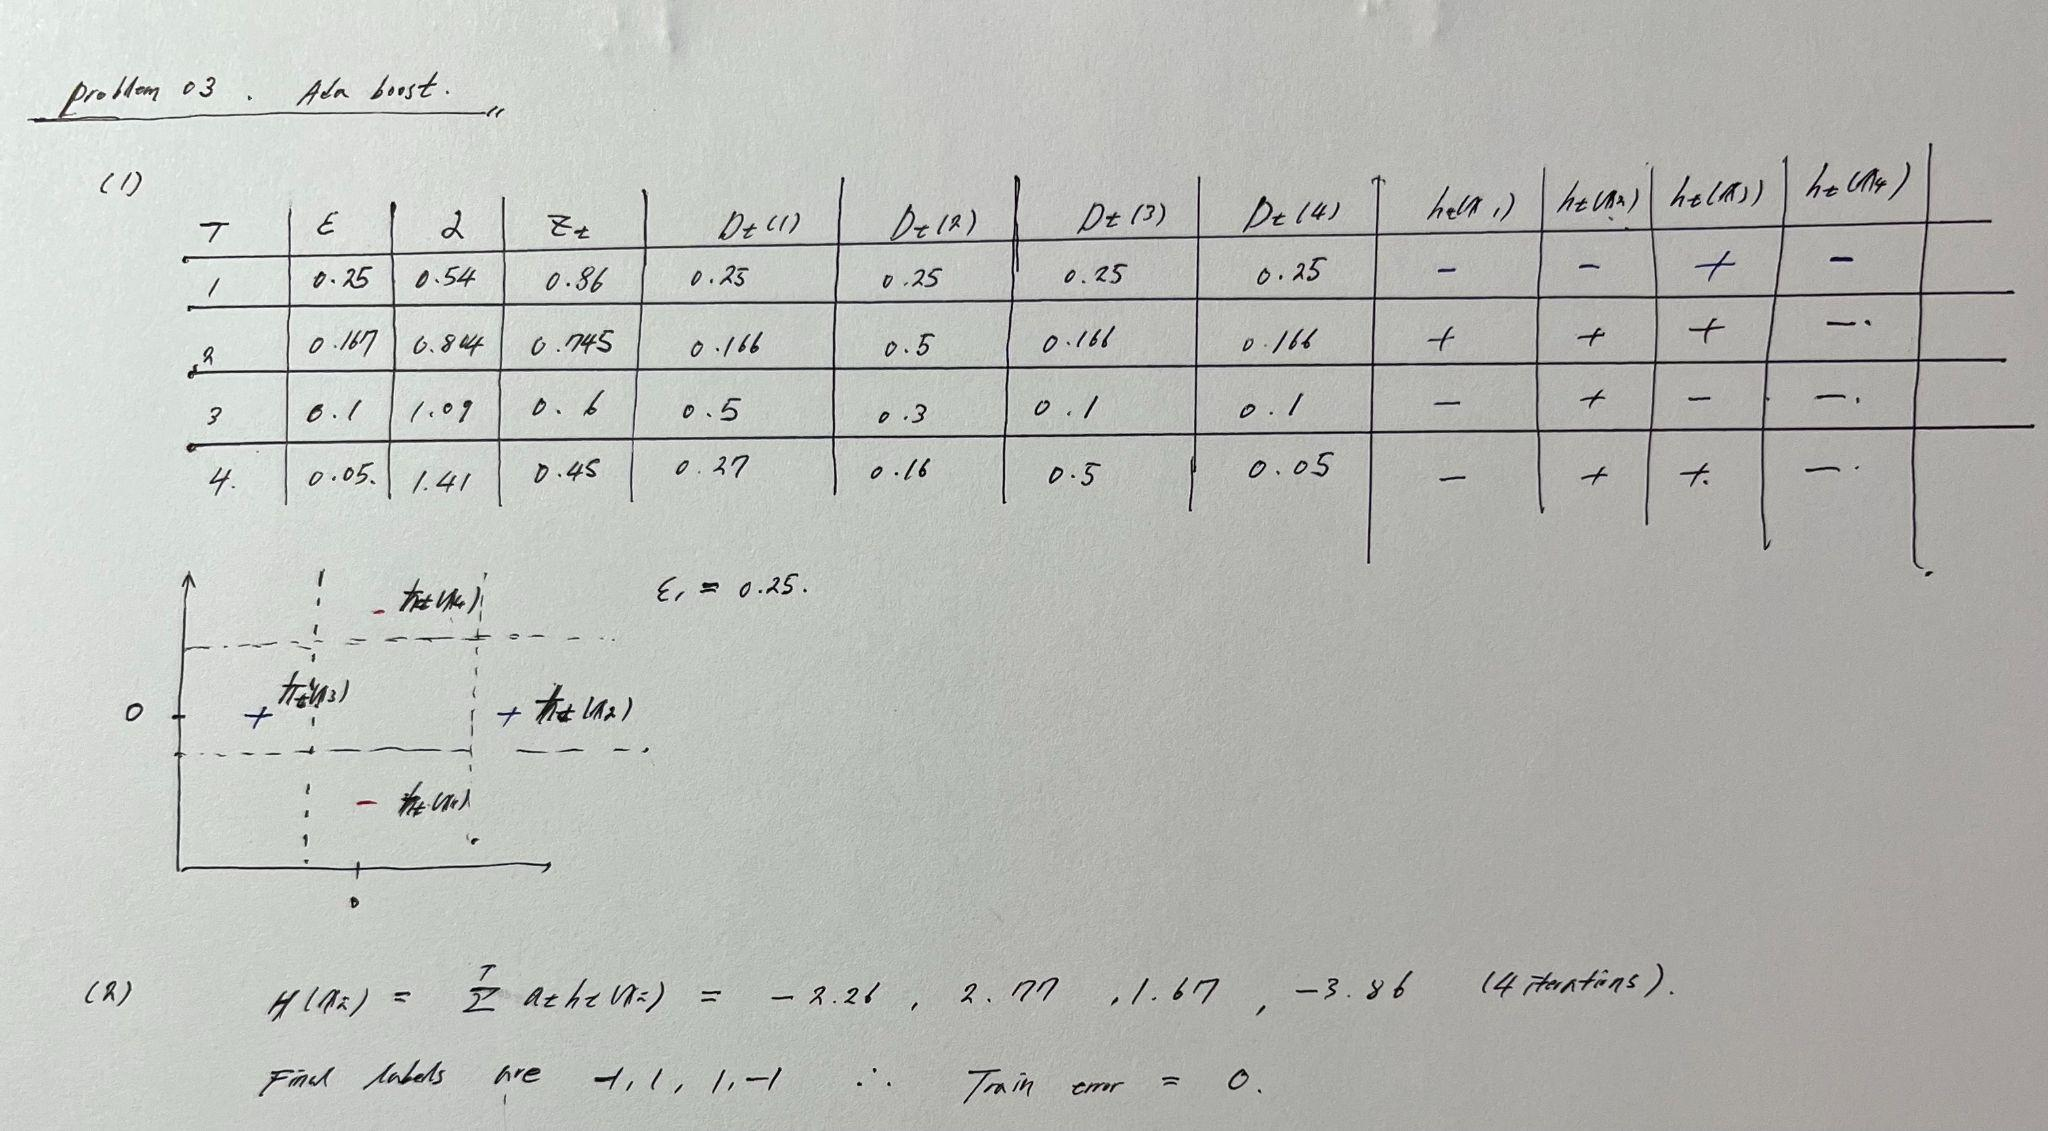 problem 03 . Ada boost.
(1)
T ε α Zt Dt(1) Dt(2) Dt(3) Dt(4) ht(x1) ht(x2) ht(x3) ht(x4)
1 0.25 0.54 0.86 0.25 0.25 0.25 0.25 - - + -
2 0.167 0.804 0.745 0.166 0.5 0.166 0.166 + + + -.
3 0.1 1.09 0.6 0.5 0.3 0.1 0.1 - + - -.
4. 0.05. 1.41 0.45 0.27 0.16 0.5 0.05 - + +. -.
- ht(x4)
ε1 = 0.25.
0 + ht(x3) + ht(x2)
- ht(x1)
0
(2) H(xi) = Σ^T at ht(xi) = -2.26 , 2.77 , 1.67 , -3.86 (4 iterations).
Final labels are -1, 1, 1, -1 ∴ Train error = 0.